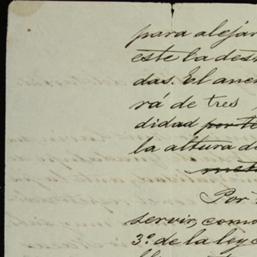 para alejar
este la des
das. El anc
rá de tres
didad por te
la altura de
met
Por
servir, como
3.º de la ley d